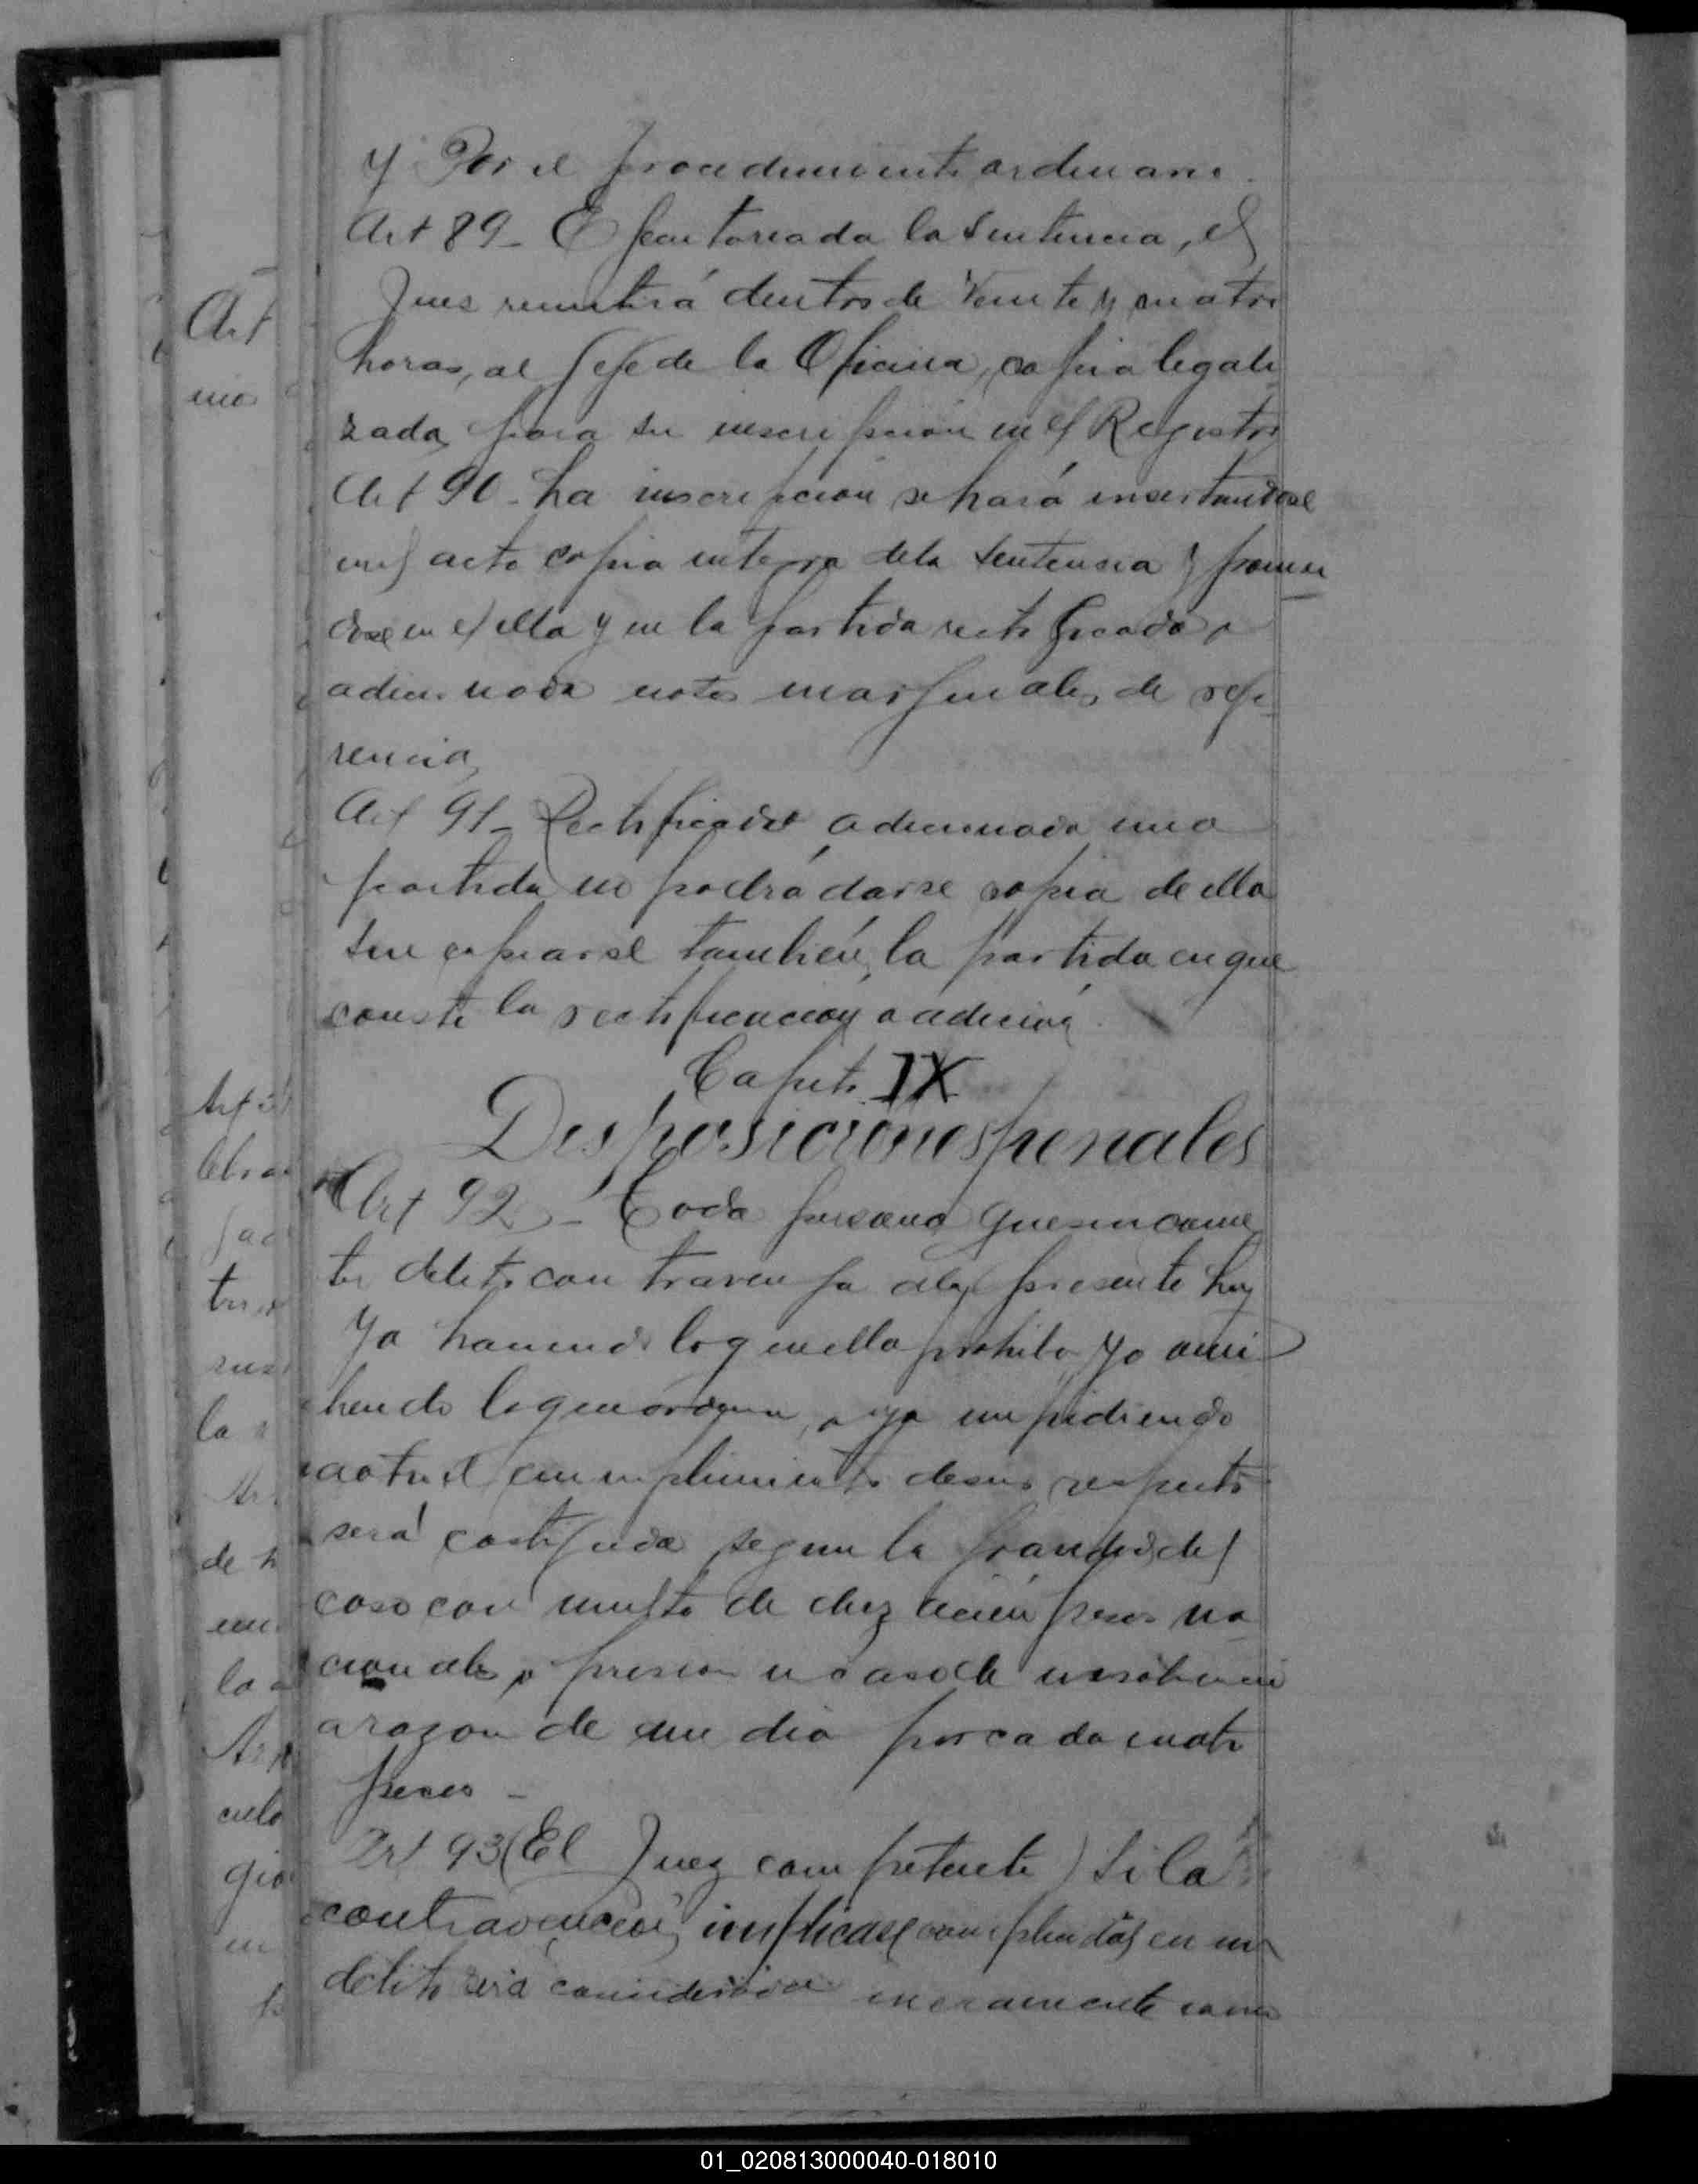 y Por el procedimiento ordinario.
Art 89_ Ejecutoriada la sentencia, el
Juez remitirá dentro de veinte y cuatro
horas, al Jefe de la Oficina, copia legali
zada, para su inscripcion en el Registro
Art 90_ La inscripcion se hará insertandose
en el acto copia integra dela sentencia y ponien
dose en ella y en la partida rectificada o
adicionada notas marginales, de refe
rencia,
Art 91_ Rectificada adicionada una
partida no podrá darse copia de ella
sin copiarse también, la partida en que
conste la rectificación o adición.
Capito IX
Disposiciones penales
Art 92_ Toda persona que sin come
ter delito contravenga ala presente Ley
ya haciendo loq en ella prohibe ya omi
tiendo loque ordena, o ya impidiendo
a otro el cumplimiento desus
será castigada, segun la gravedad del
caso con multa de diez a cien pesos na
cionales, o prision en caso de insolvencia
arazon de un dia por cada cuatro
pesos _
Art 93 (El Juez competente) Si la
contravencion, implicase en un
delito será considerada como
Art
Art
la
de
la
Art
culo
gio
en
01_020813000040-018010